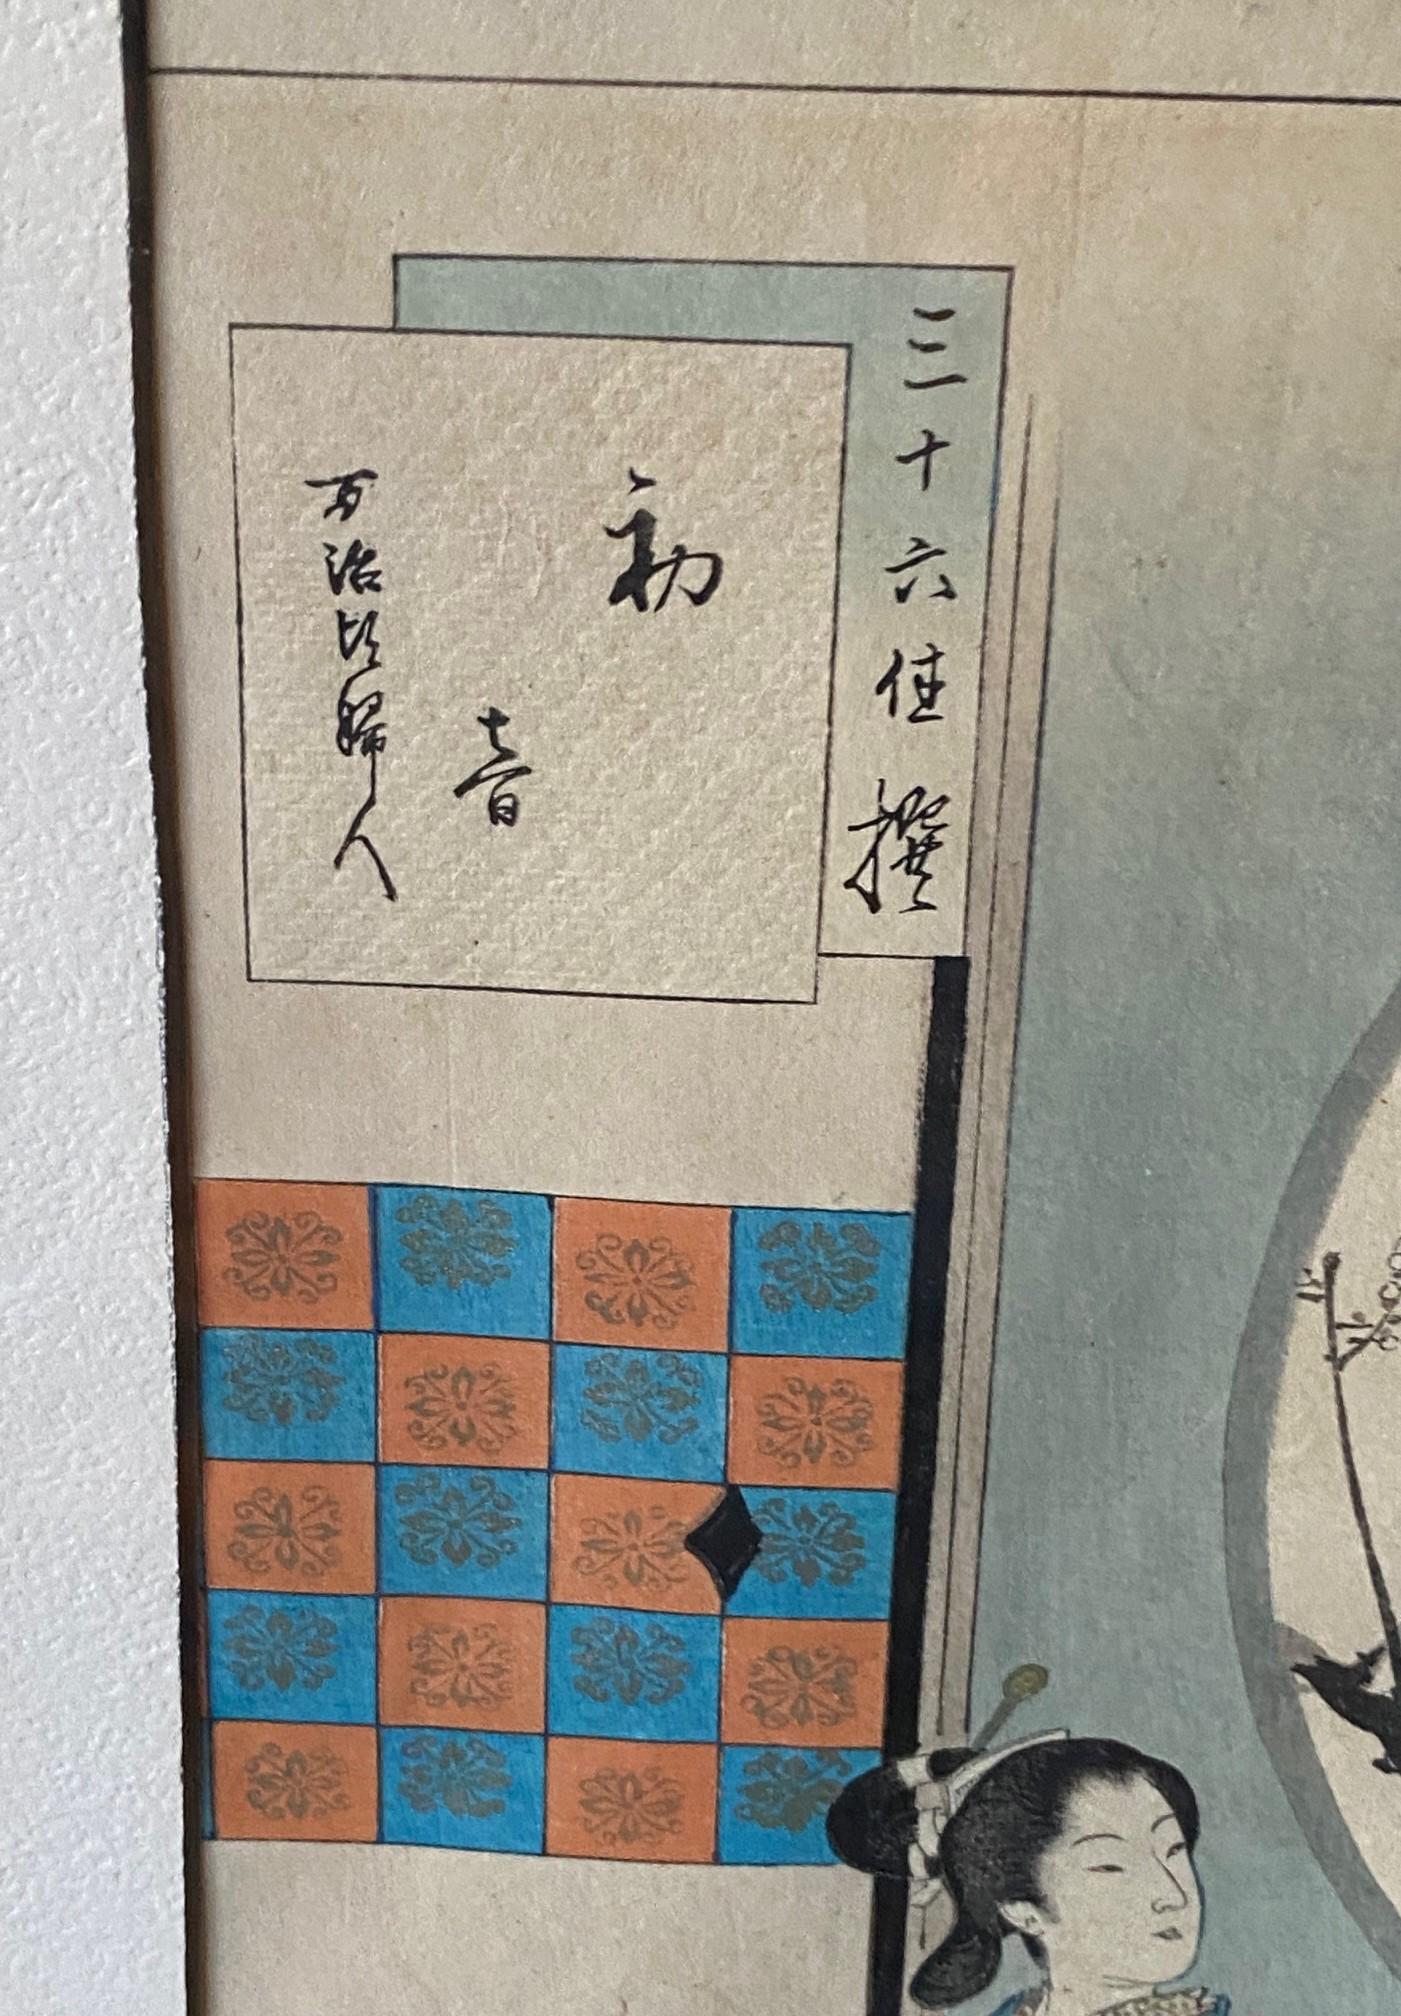 三十六佳撰
初音
万治頃婦人